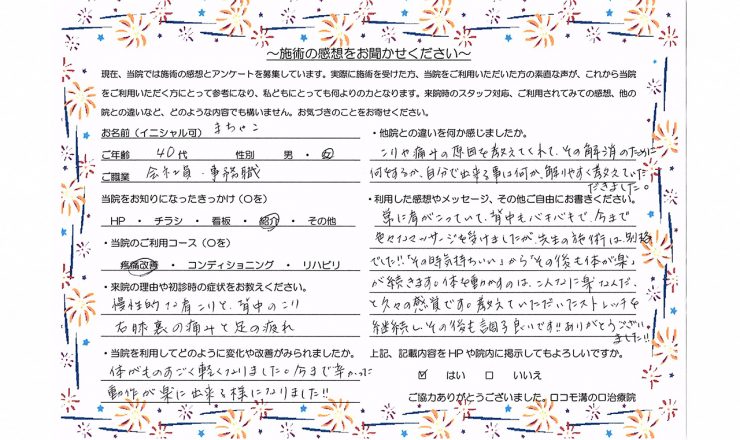 ～施術の感想をお聞かせください～
現在、当院では施術の感想とアンケートを募集しています。実際に施術を受けた方、当院をご利用いただいた方の素直な声が、これから当院
をご利用いただく方にとって参考になり、私どもにとっても何よりの力となります。来院時のスタッフ対応、ご利用されてみての感想、他の
院との違いなど、どのような内容でも構いません。お気づきのことをお寄せください。
お名前（イニシャル可） まちゃこ
ご年齢 40代 性別 男・女
ご職業 会社員・事務職
当院をお知りになったきっかけ（○を）
HP ・ チラシ ・ 看板 ・ 紹介 ・ その他
・当院のご利用コース（○を）
疼痛改善 ・ コンディショニング ・ リハビリ
・来院の理由や初診時の症状をお教えください。
慢性的な肩こりと、背中のこり
右膝裏の痛みと足の疲れ
・当院を利用してどのように変化や改善がみられましたか。
体がものすごく軽くなりました。今まで辛かった
動作が楽に出来る様になりました!!
・他院との違いを何か感じましたか。
こりや痛みの原因を教えてくれて、その解消のために
何をするか、自分で出来る事は何か、解りやすく教えていた
だきました。
・利用した感想やメッセージ、その他ご自由にお書きください。
常に肩がこっていて、背中もバキバキで、今まで
色々なマッサージを受けましたが先生の施術は、別格
でした!!「その時気持ちいい」から「その後も体が楽」
が続きます。体を動かすのは、こんなに楽なんだ、
と久々の感覚です。教えていただいたストレッチも
継続しその後も調子良いです!!ありがとうござい
ました!!
上記、記載内容をHPや院内に掲示してもよろしいですか。
☑ はい □ いいえ
ご協力ありがとうございました。ロコモ溝の口治療院